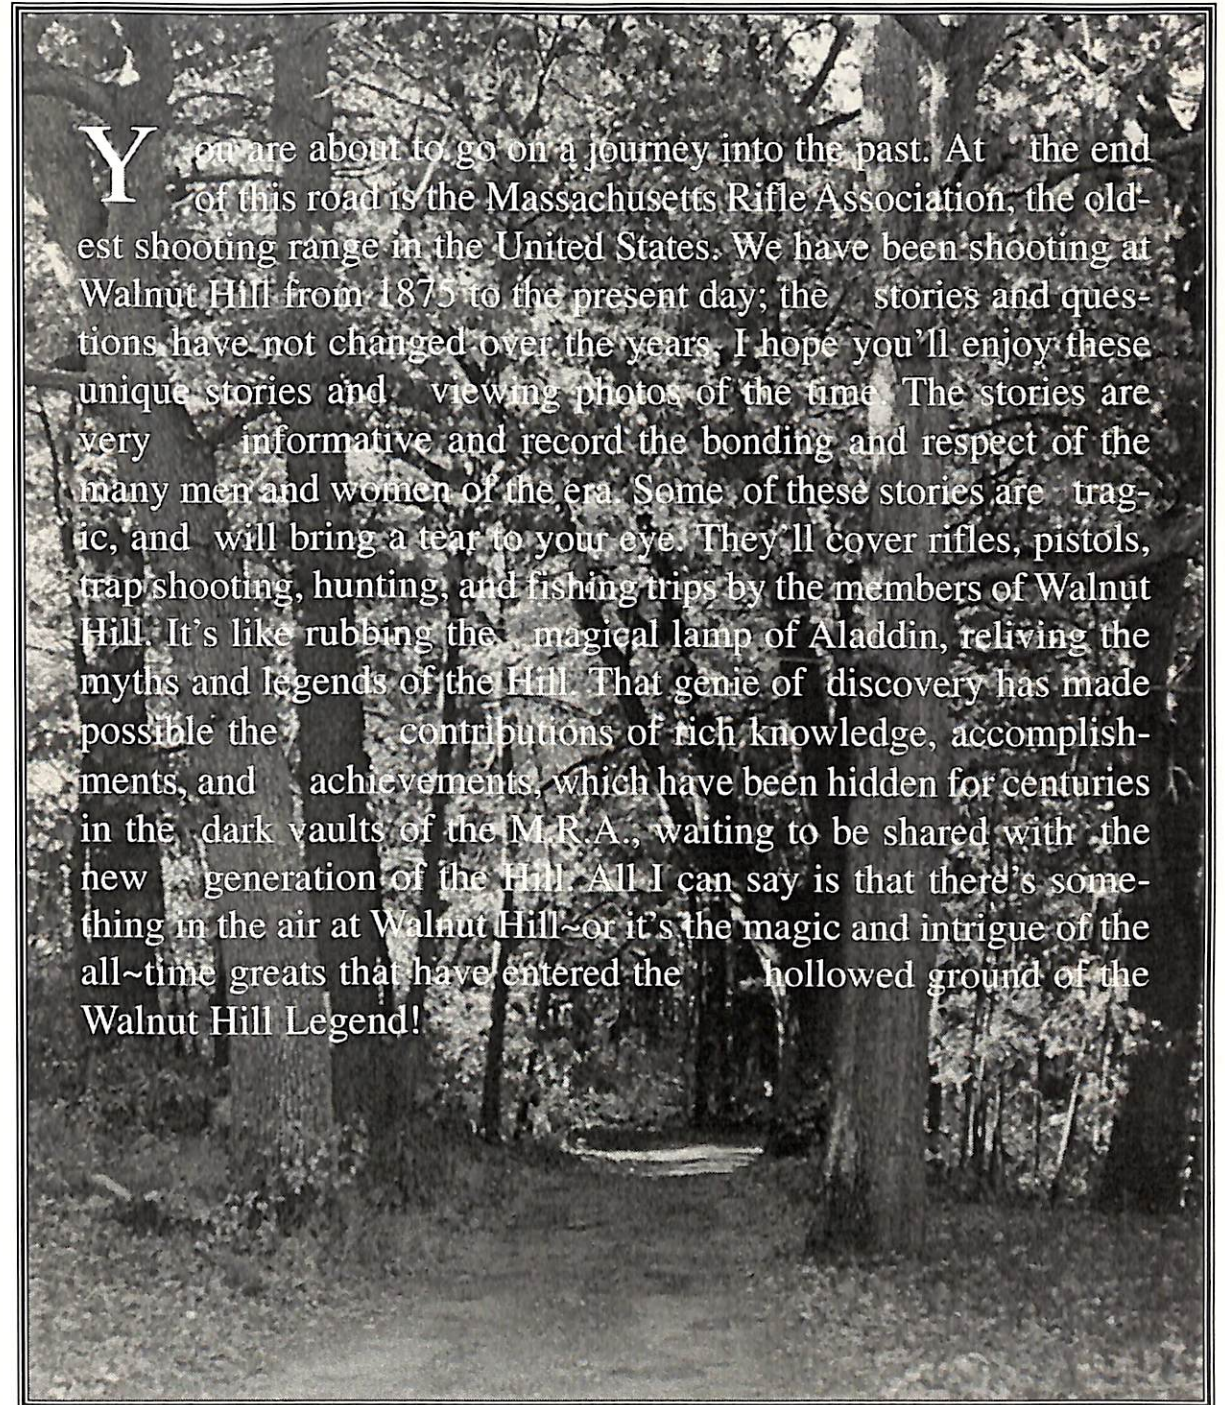 You are about to go on a journey into the past. At the end
of this road is the Massachusetts Rifle Association, the old-
est shooting range in the United States. We have been shooting at
Walnut Hill from 1875 to the present day; the stories and ques-
tions have not changed over the years, I hope you'll enjoy these
unique stories and viewing photos of the time. The stories are
very informative and record the bonding and respect of the
many men and women of the era. Some of these stories are trag-
ic, and will bring a tear to your eye. They'll cover rifles, pistols,
trap shooting, hunting, and fishing trips by the members of Walnut
Hill. It's like rubbing the magical lamp of Aladdin, reliving the
myths and legends of the Hill. That genie of discovery has made
possible the contributions of rich knowledge, accomplish-
ments, and achievements, which have been hidden for centuries
in the dark vaults of the M.R.A., waiting to be shared with the
new generation of the Hill. All I can say is that there's some-
thing in the air at Walnut Hill~or it's the magic and intrigue of the
all~time greats that have entered the hollowed ground of the
Walnut Hill Legend!